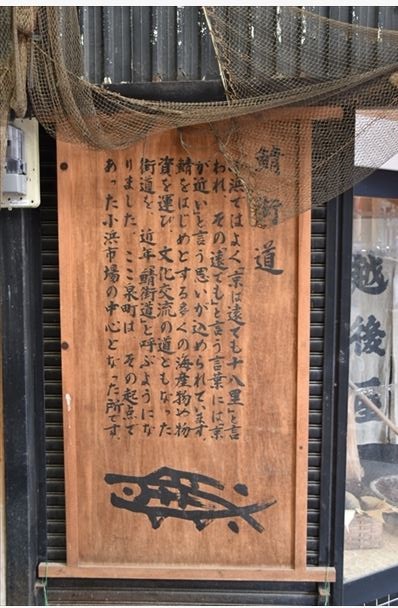 鯖街道
小浜ではよく「京は遠ても十八里」と言
われ、その「遠ても」と言う言葉には「京
が近い」と言う思いが込められています。
鯖をはじめとする多くの海産物や物
資を運び、文化交流の道ともなった
街道を、近年「鯖街道」と呼ぶようにな
りました。ここ泉町は、その起点で
あった小浜市場の中心となった所です。
越後屋